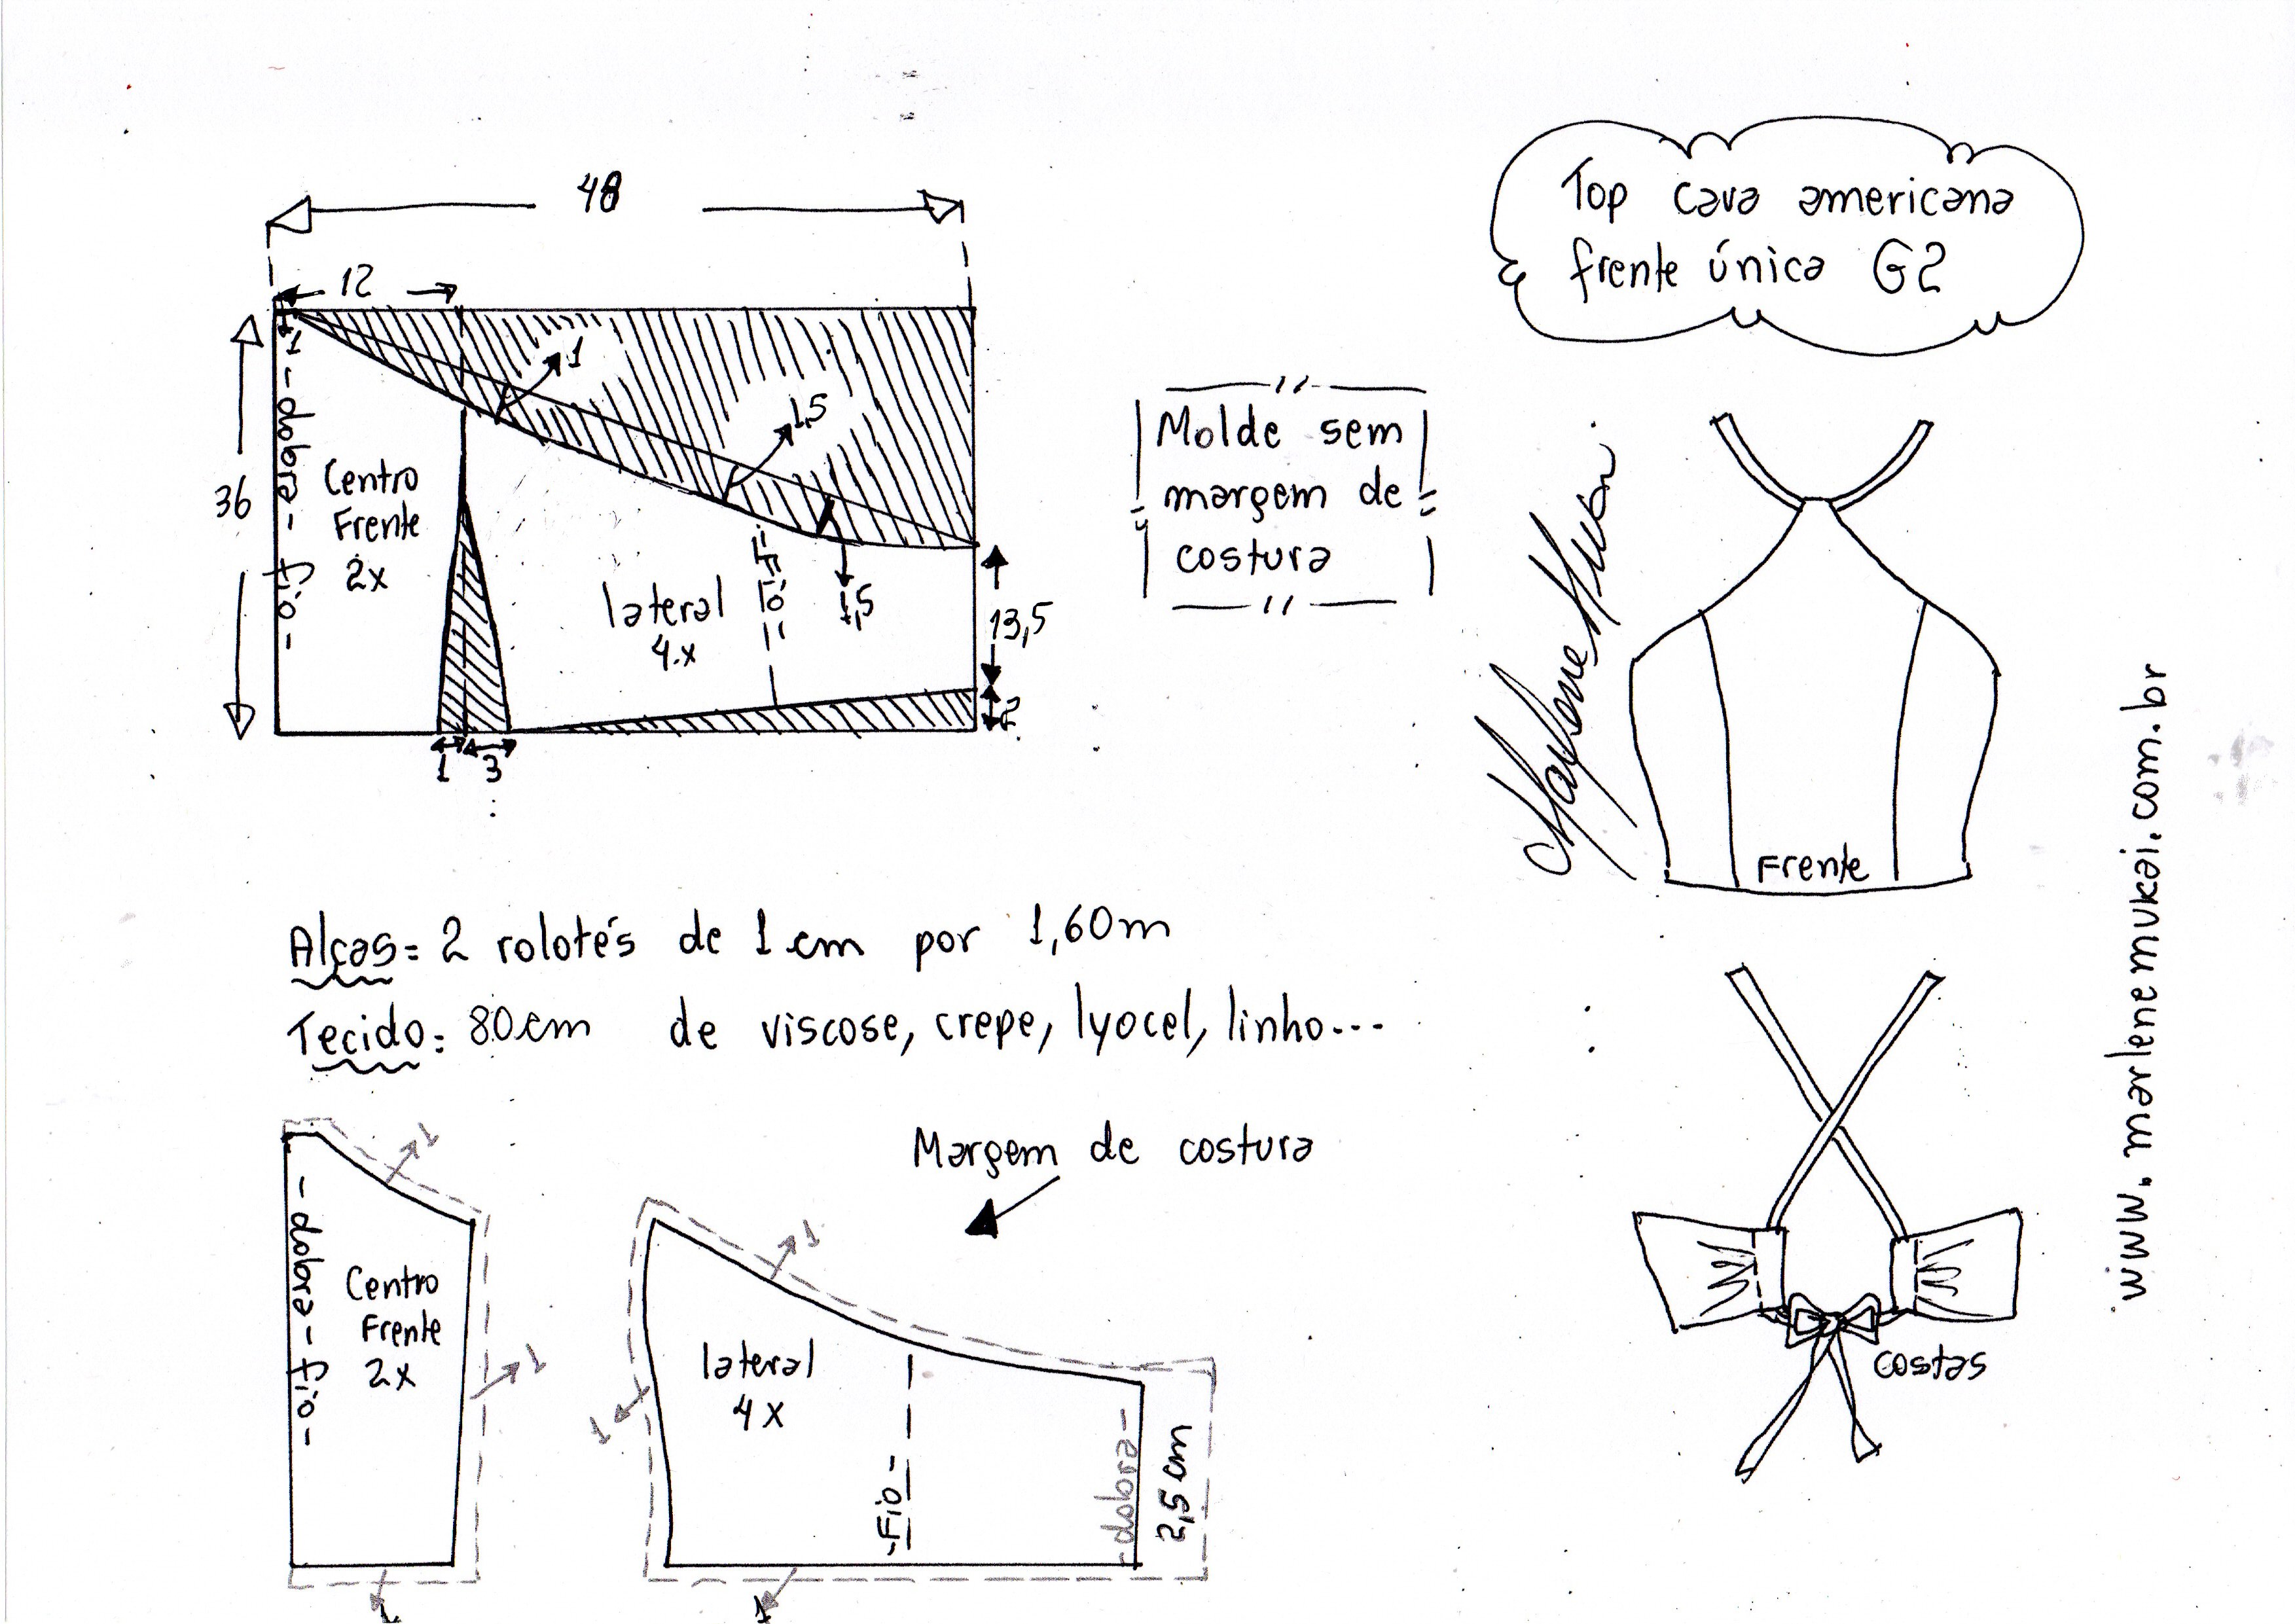 48
12
1
- dobra - fio -
36
Centro
Frente
2x
1
1,5
1,5
lateral
4.x
"fio"
13,5
2
1
3
Top cava americana
frente única G2
Molde sem
margem de
costura
Frente
Alças = 2 rolotés de 1 cm por 1,60m
Tecido: 80cm de viscose, crepe, lyocel, linho...
Margem de costura
- dobra - fio -
Centro
Frente
2x
1
1
1
lateral
4x
1
1
1
- Fio -
- dobra -
2,5 cm
costas
www.marlenemukai.com.br